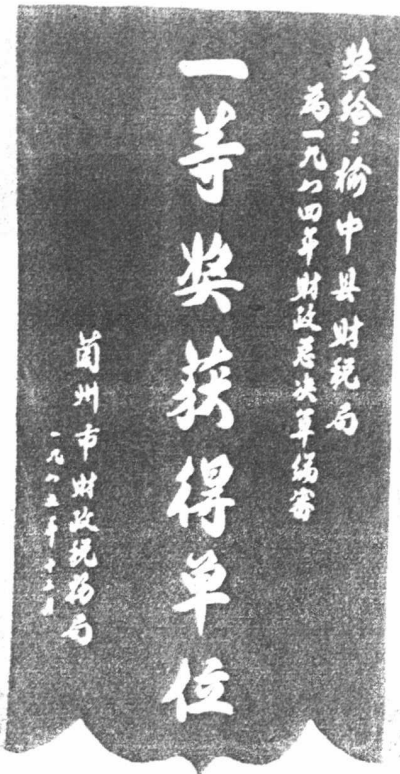 奖给：榆中县财税局
为一九八四年财政总决算编审
一等奖获得单位
兰州市财政税务局
一九八五年十二月